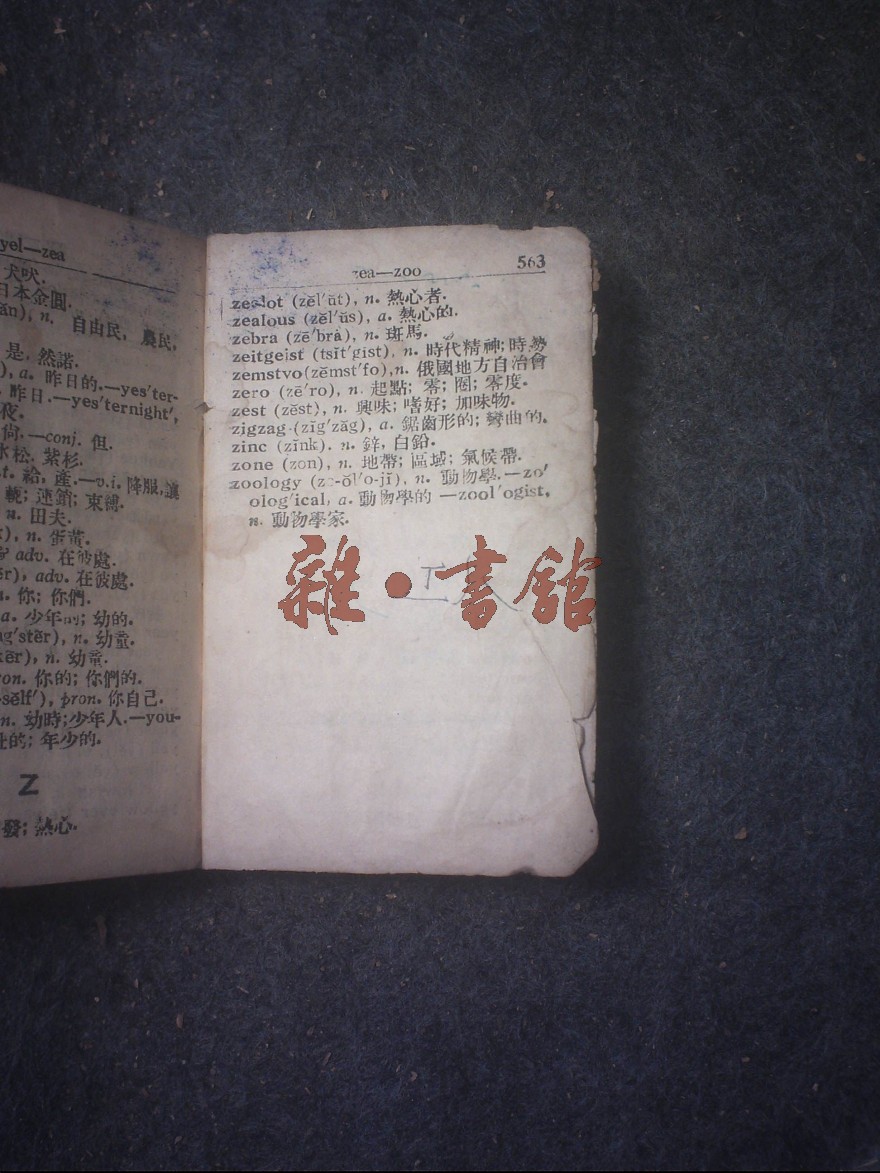 yel—zea
犬吠.
日本金圓.
n. 自由民, 農民,
是, 然諾.
), a. 昨日的.—yes'ter-
昨日.—yes'ternight',
夜.
尙.—conj. 但.
水松, 紫杉.
給, 產.—v.i. 降服, 讓
軛; 連鎖; 束縛.
n. 田夫.
), n. 蛋黃.
adv. 在彼處.
ĕr), adv. 在彼處.
你; 你們.
a. 少年的; 幼的.
ng'stĕr), n. 幼童.
kĕr), n. 幼童.
ron. 你的; 你們的.
-sĕlf'), pron. 你自己.
n. 幼時; 少年人.—you-
壯的; 年少的.
Z
發; 熱心.
zea—zoo 563
zealot (zĕl'ŭt), n. 熱心者.
zealous (zĕl'ŭs), a. 熱心的.
zebra (zē'brȧ), n. 斑馬.
zeitgeist (tsīt'gist), n. 時代精神; 時勢
zemstvo(zĕmst'fo), n. 俄國地方自治會
zero (zē'ro), n. 起點; 零; 圈; 零度.
zest (zĕst), n. 興味; 嗜好; 加味物.
zigzag (zĭg'zăg), a. 鋸齒形的; 彎曲的.
zinc (zĭnk). n. 鋅, 白鉛.
zone (zon), n. 地帶; 區域; 氣候帶.
zoology (zo-ŏl'o-jĭ), n. 動物學.—zo'
olog'ical, a. 動物學的 —zool'ogist,
n. 動物學家.
雜·書館